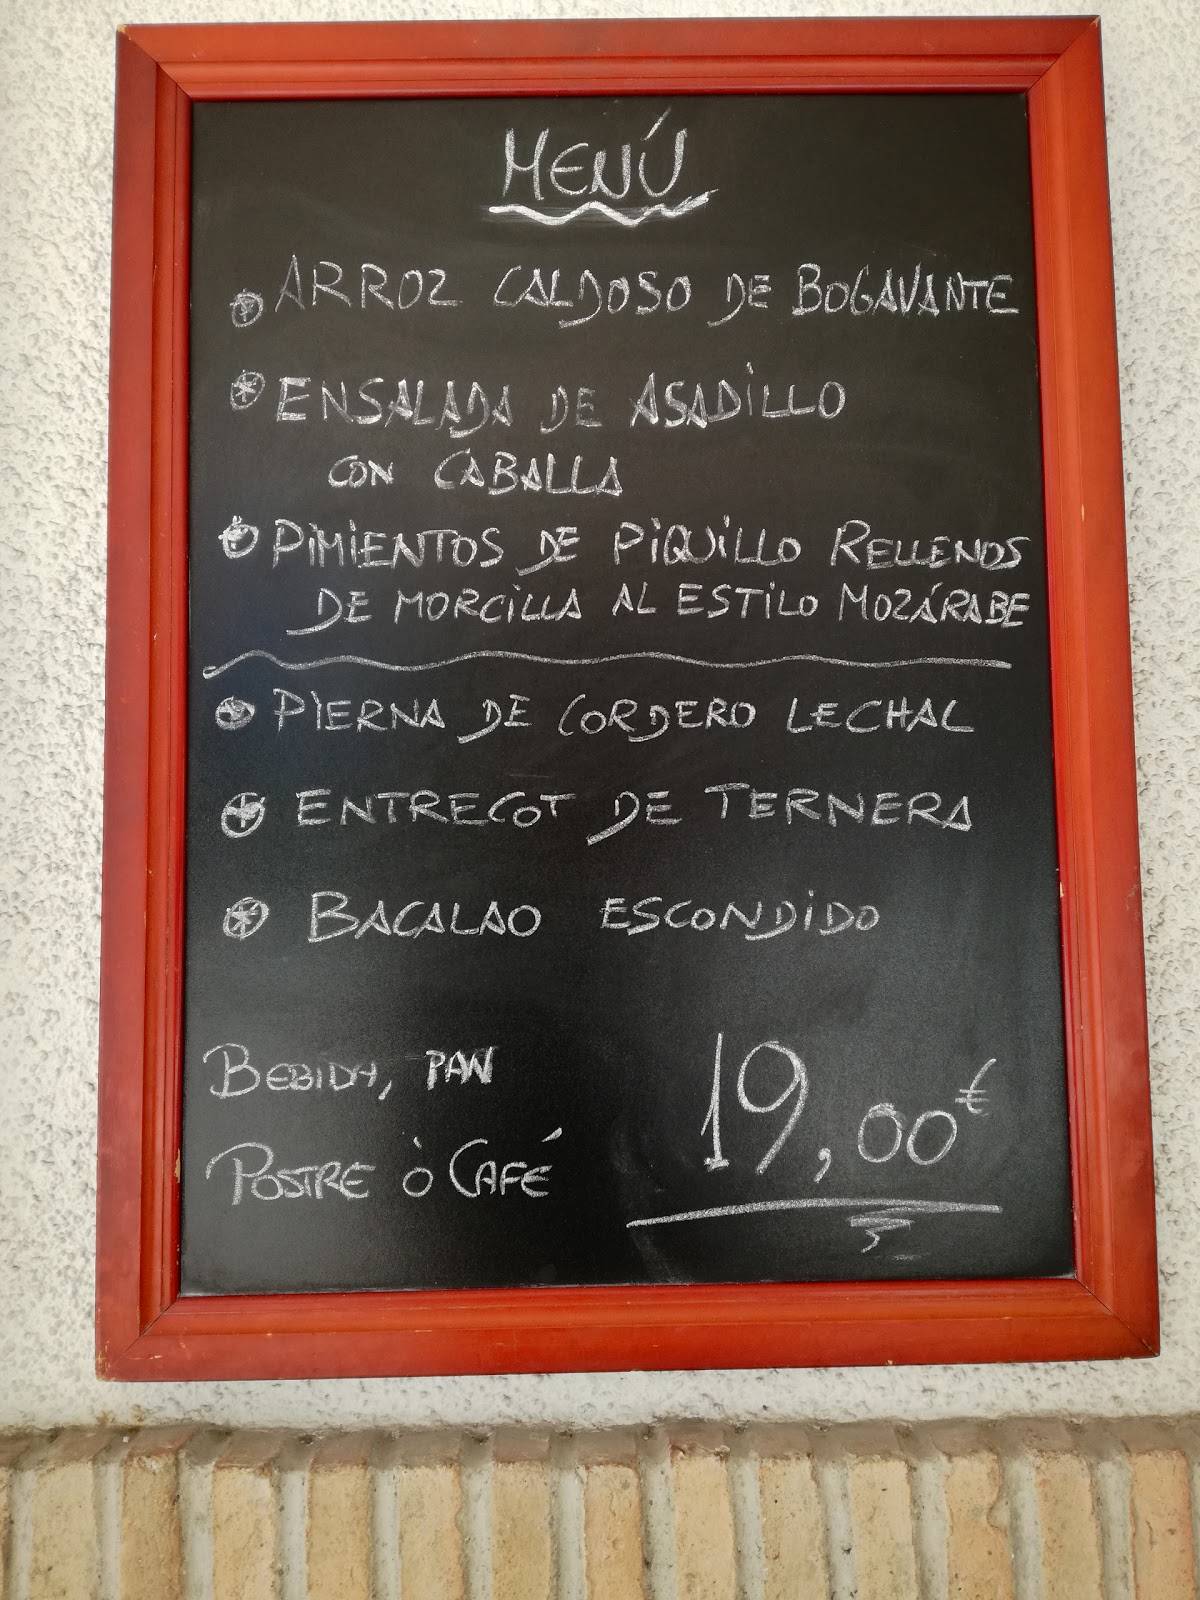 MENÚ
ARROZ CALDOSO DE BOGAVANTE
ENSALADA DE ASADILLO
CON CABALLA
PIMIENTOS DE PIQUILLO RELLENOS
DE MORCILLA AL ESTILO MOZÁRABE
PIERNA DE CORDERO LECHAL
ENTRECOT DE TERNERA
BACALAO ESCONDIDO
BEBIDA, PAN
POSTRE Ò CAFÉ
19,00€